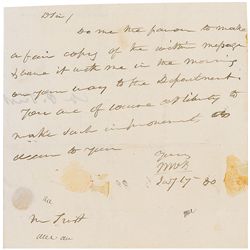 Do me the favor to make
a fair copy of the within message
& leave it with me in the morning
on your way to the Department.
You are of course at liberty to
make such improvement as
occur to you
Yours
Mr Trist